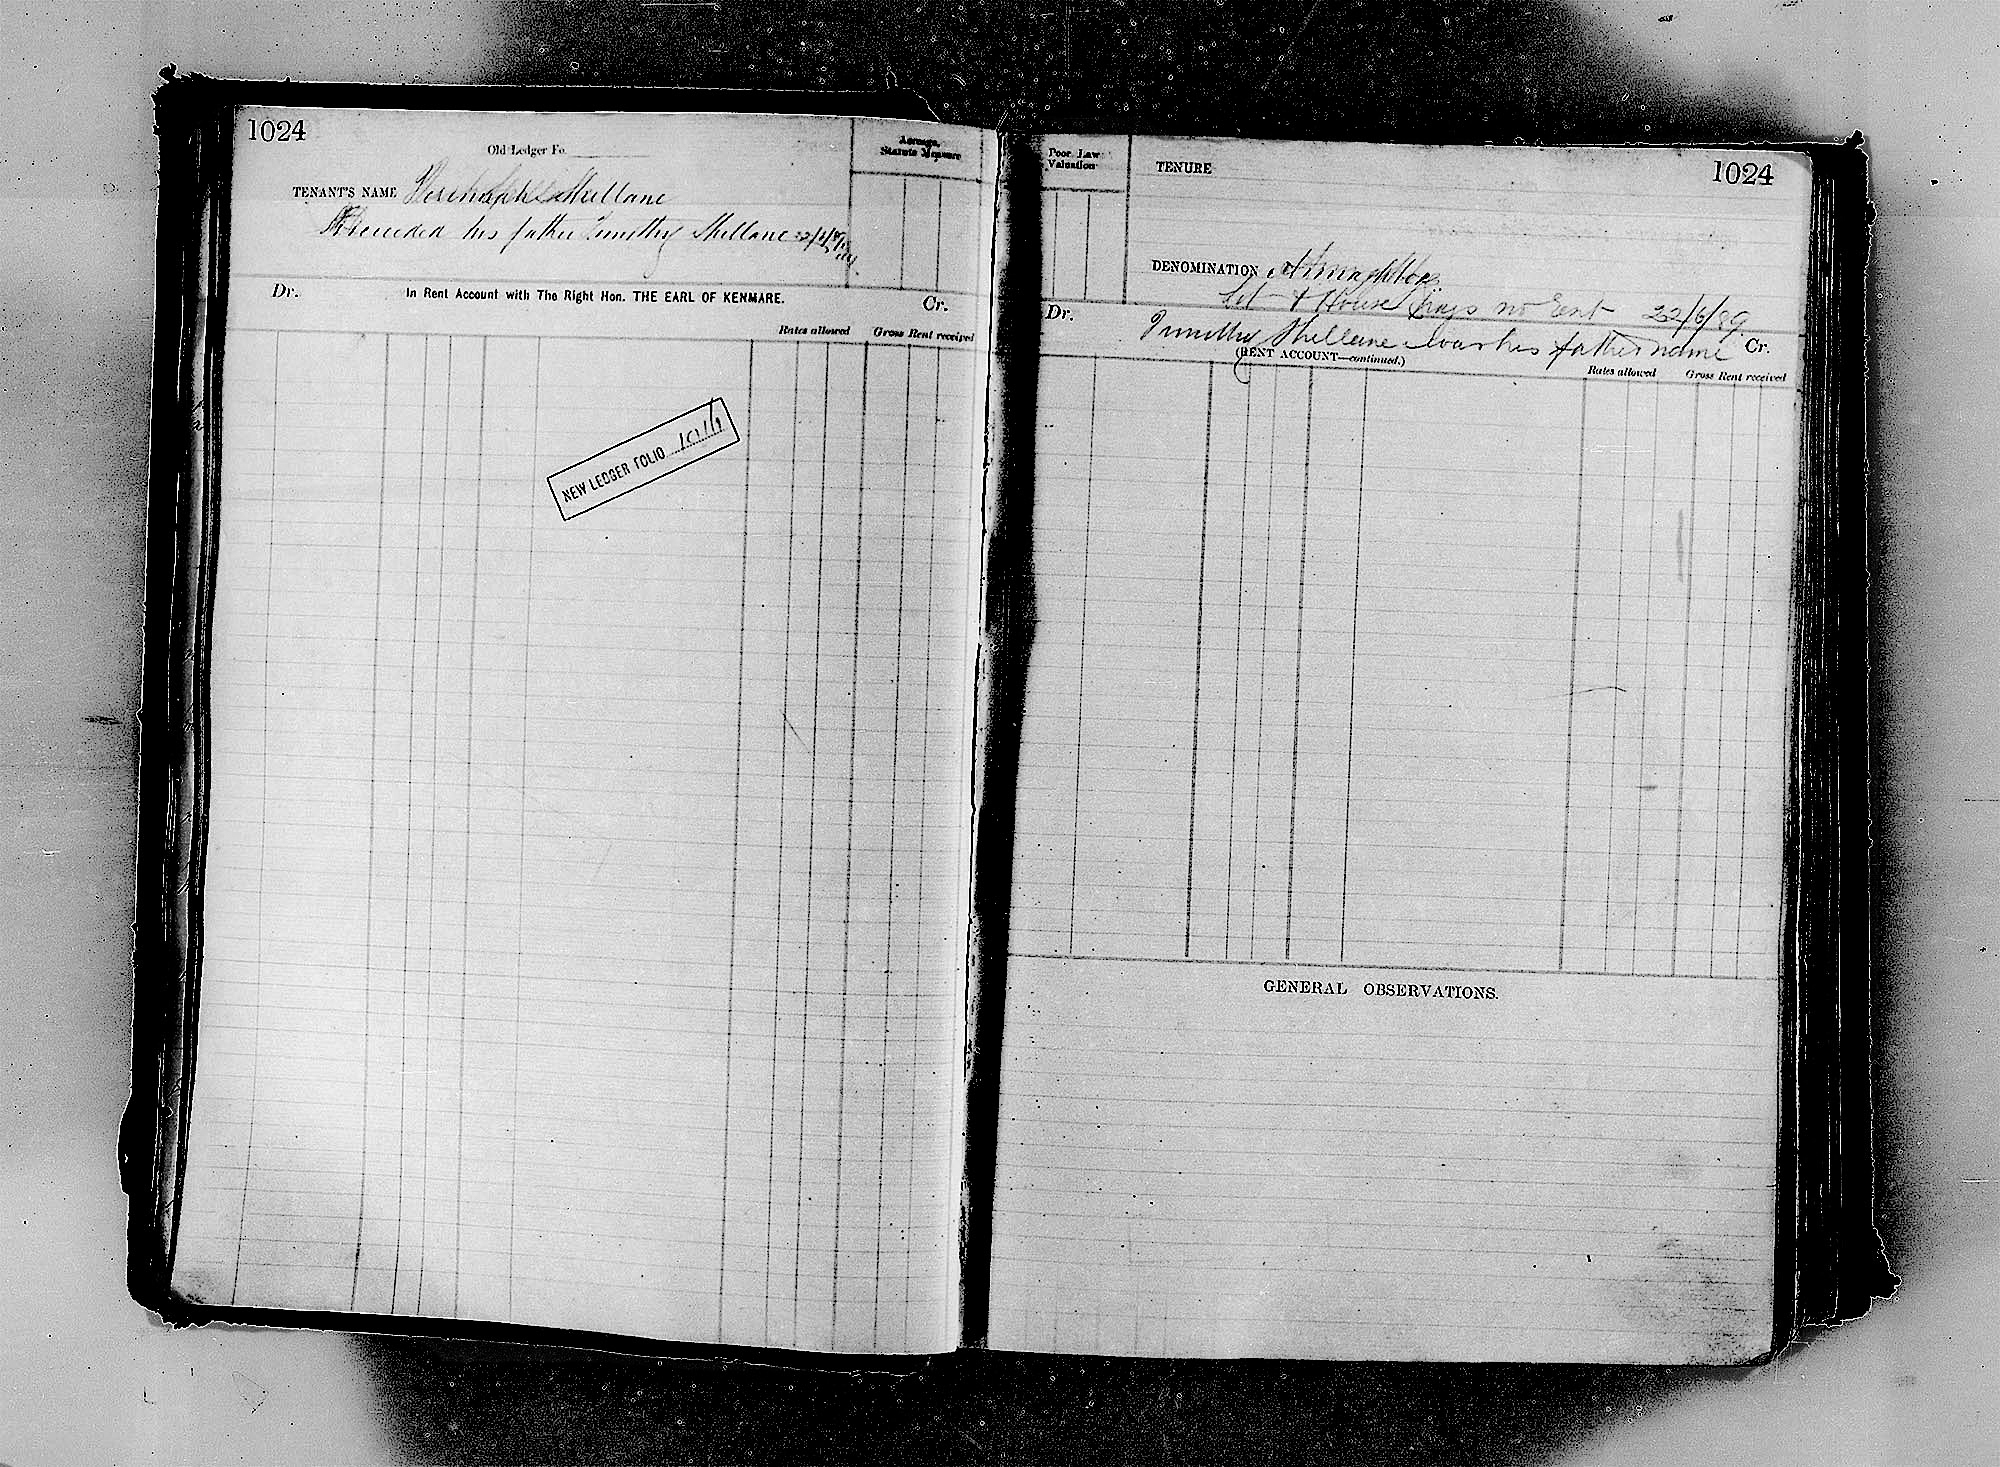 1024
Old Ledger Fo.
Acreage,
Statute Measure
TENANT'S NAME Shellane
Succeeded his father Timothy Shellane
Dr. In Rent Account with The Right Hon. THE EARL OF KENMARE. Cr.
Rates allowed Gross Rent received
NEW LEDGER FOLIO 1016
Poor Law
Valuation
TENURE
1024
DENOMINATION
& House pays no Rent 22/6/89
Dr. Timothy Shellane was his fathers name Cr.
(RENT ACCOUNT—continued.)
Rates allowed Gross Rent received
GENERAL OBSERVATIONS.